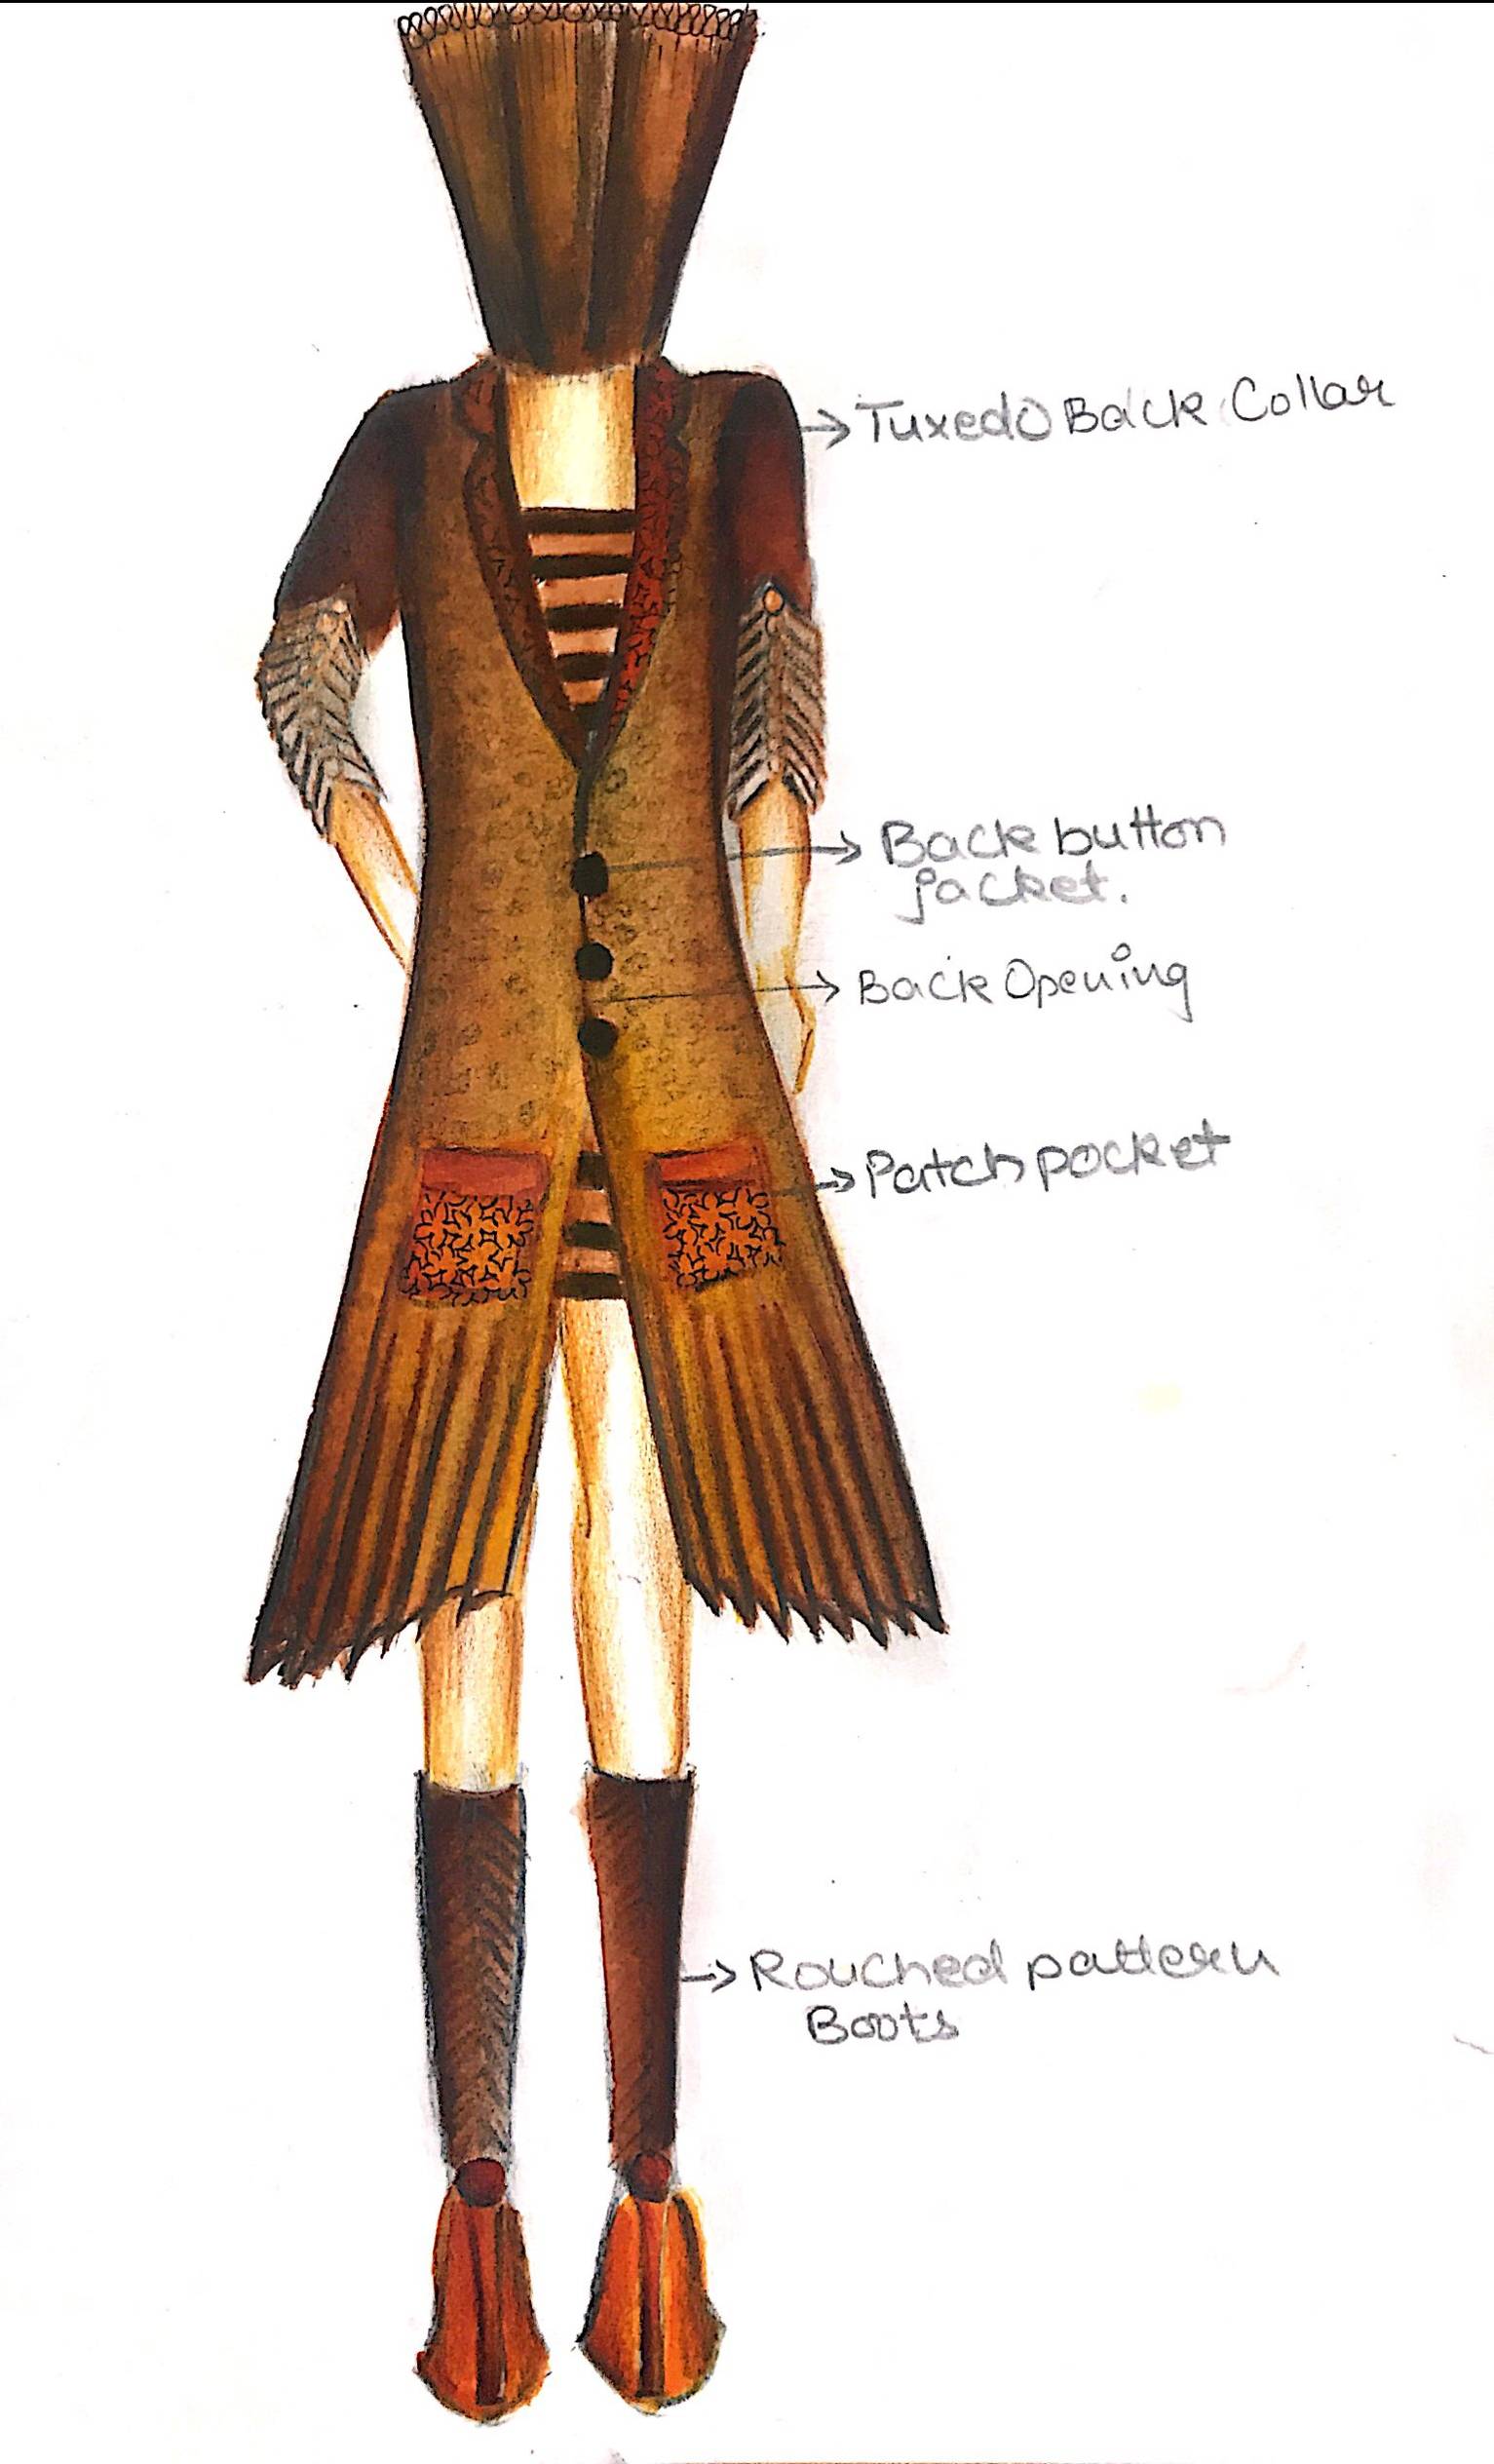 Tuxedo Back Collar
Back button
jacket.
Back Opening
Patch pocket
Rouched pattern
Boots